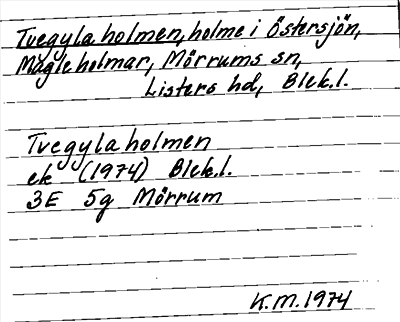 Tvegylaholmen, holme i Östersjön,
Magleholmar, Mörrums sn,
Listers hd, Blek.l.
Tvegylaholmen
ek (1974) Blek.l.
3E 5g Mörrum
K.M. 1974